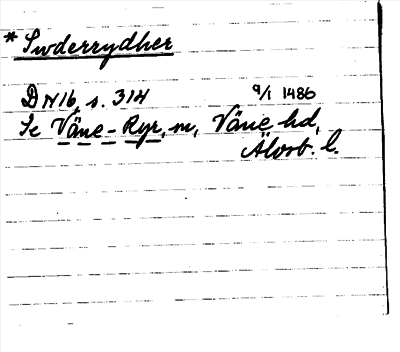 * Swderrydher
DN 16, s. 314 9/1 1486
Se Väne-Ryr, sn, Väne hd,
Älvsb. l.